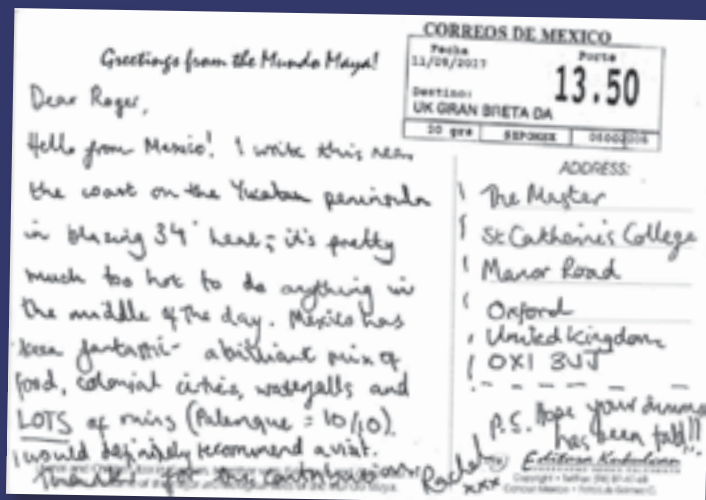 CORREOS DE MEXICO
Fecha
Porte
11/08/2017
13.50
Destino:
UK GRAN BRETA DA
20 grs
SEPOMEX
Greetings from the Mundo Maya!
Dear Roger,
Hello from Mexico! I write this near
the coast on the Yucatan peninsula
in blazing 34° heat; it's pretty
much too hot to do anything in
the middle of the day. Mexico has
been fantastic - a brilliant mix of
food, colonial cities, waterfalls and
LOTS of ruins (Palenque = 10/10).
I would definitely recommend a visit.
Thanks for the contribution.
Rachel
xxx
ADDRESS:
The Master
St Catherine's College
Manor Road
Oxford
United Kingdom
OX1 3UJ
P.S. Hope your summer
has been fab!!